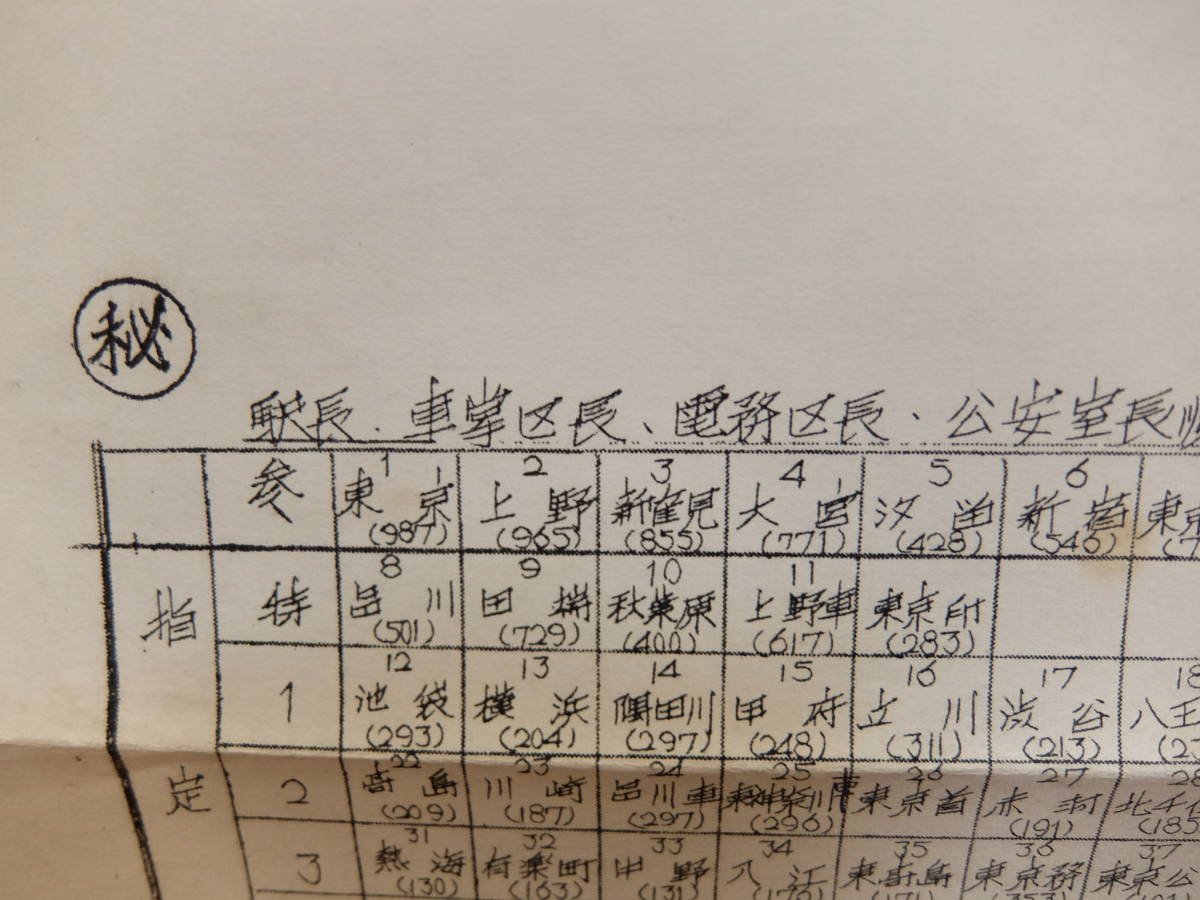 秘
駅長、車掌区長、電務区長・公安室長
参 1 東京 (987) 2 上野 (965) 3 新鶴見 (855) 4 大宮 (771) 5 汐留 (428) 6 新宿 (546) 東京
指 特 8 品川 (501) 9 田端 (729) 10 秋葉原 (400) 11 上野車 (617) 東京所 (283)
1 12 池袋 (293) 13 横浜 (204) 14 隅田川 (297) 15 甲府 (248) 16 立川 (311) 17 渋谷 (213) 18 八王
定 2 22 高島 (209) 23 川崎 (187) 24 品川車 (297) 25 東神奈川車 (296) 26 東京首 27 赤羽 (191) 28 北千 (185
3 31 熱海 (130) 32 有楽町 (163) 33 中野 (131) 34 入江 (176) 35 東高島 (171) 36 東京務 (353) 37 東京公